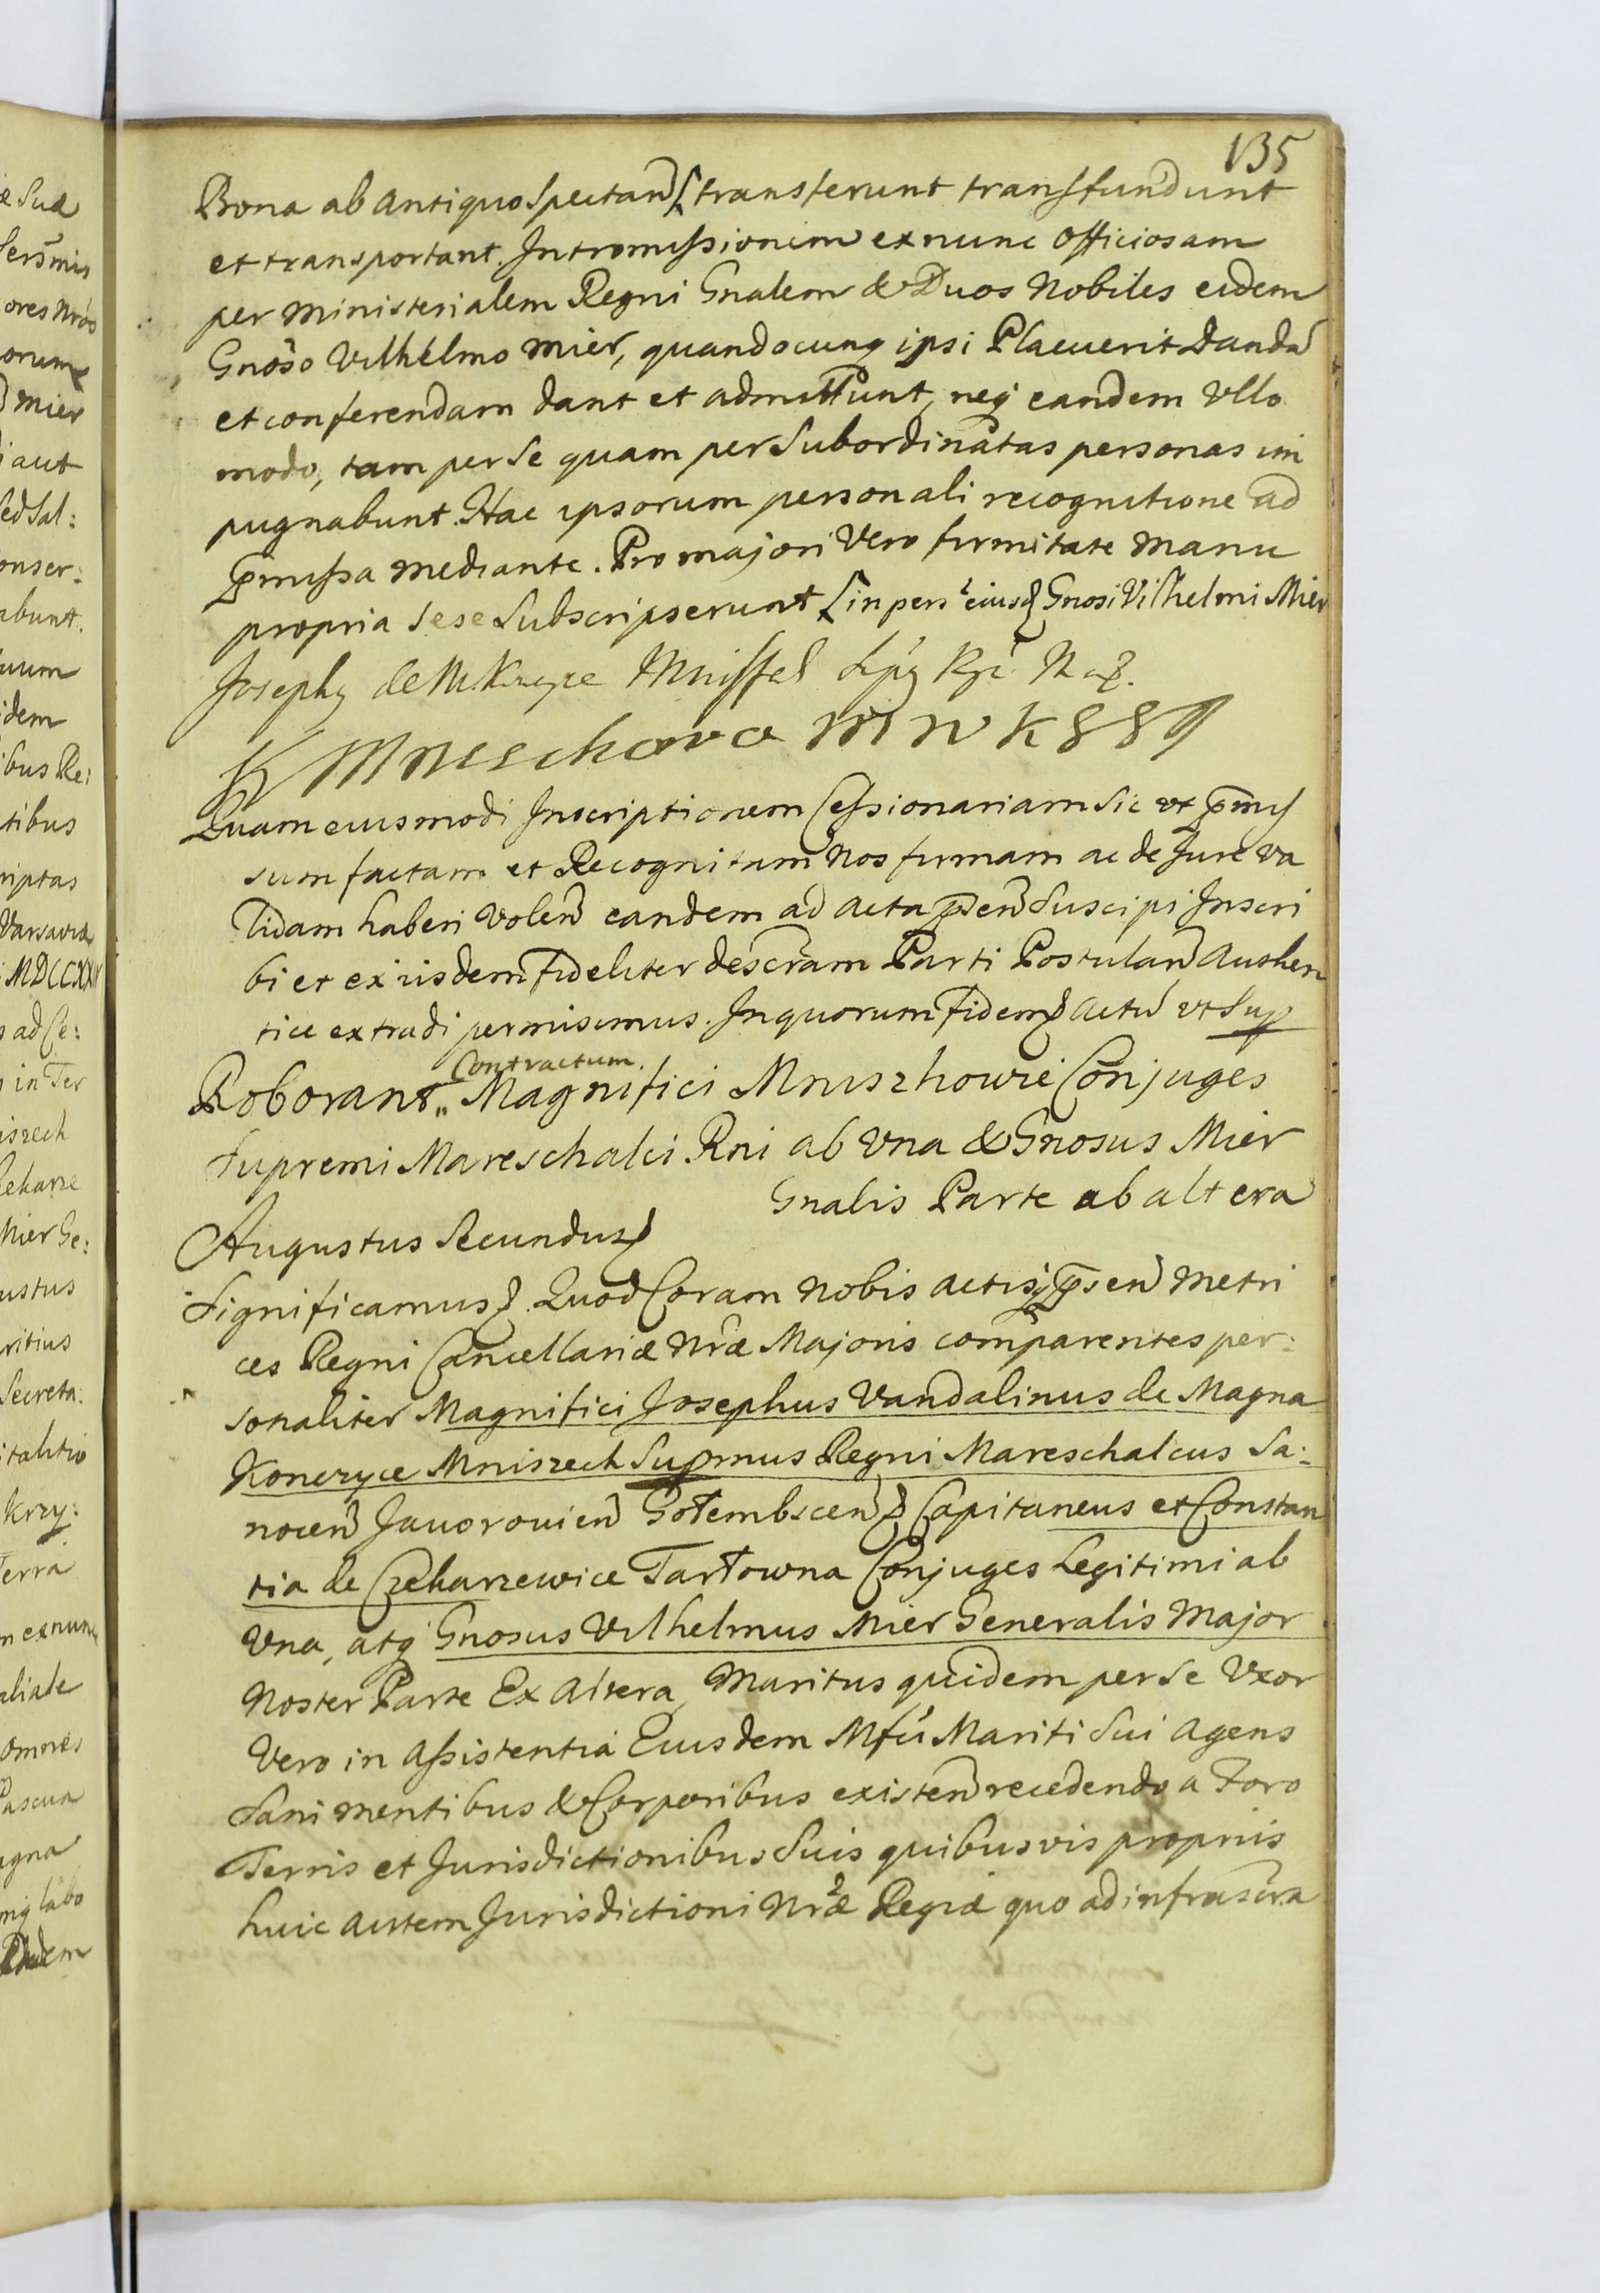 135
Bona ab antiquo Spectan transferunt transfundunt
et transportant. Intromissionem ex nunc Officiosam
per Ministerialem Regni Gnalem & Duos Nobiles eidem
Gnoso Vilhelmo Mier, quandocunq ipsi Placuerit Danda
et conferendam dant et admittunt, neq eandem Vllo
modo, tam per Se quam per Subordinatas personas im
pugnabunt. Hac ipsorum personali recognitione ad
pmissa mediante. Pro majori Vero firmitate Manu
propria sese Subscripserunt in pers eiusd Gnosi Vilhelmi Mier
Josephq de M. Mniszek
K Mneschova M W K
Quam eiusmodi Inscriptionem Cessionariam sic vt pmis
sum factam et Recognitam Nos firmam ac de Jure va
lidam haberi Volen eandem ad acta psen Suscipi Inscri
bi et ex iisdem fideliter descram Parti Postulan Authen
tice extradi permisimus. In quorum Fidem Actu vt Sup
Contractum
Roborant.. Magnifici Mniszhowie Conjuges
Supremi Mareschalci Rni ab Vna & Gnosus Mier
Gnalis Parte ab altera
Augustus Secundus
Significamus. Quod Coram Nobis actisq psen Metri
ces Regni Cancellariæ Nræ Majoris comparentes per:
sonaliter Magnifici Josephus Vandalinus de Magna
Konczyce Mniszech Supmus Regni Mareschalcus Sa:
nocen Javorovien Gołembscen Capitaneus et Constan
tia de Czekarzewice Tarłowna Conjuges Legitimi ab
Vna, atq Gnosus Vilhelmus Mier Generalis Major
Noster Parte Ex Altera, Maritus quidem per Se Vxor
Vero in Assistentia Eiusdem Mfci Mariti Sui agens
Sani mentibus & Corporibus existen recedendo a Foro
Terris et Jurisdictionibus Suis quibusvis propriis
huic autem Jurisdictioni Nræ Regiæ quo ad infrascra